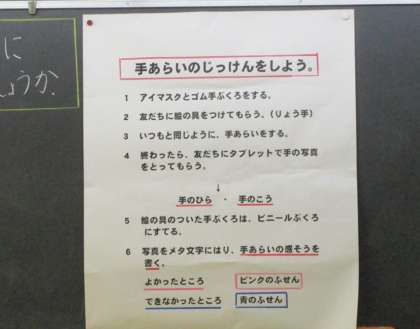 に
しょうか
手あらいのじっけんをしよう。
1 アイマスクとゴム手ぶくろをする。
2 友だちに絵の具をつけてもらう。(りょう手)
3 いつもと同じように、手あらいをする。
4 終わったら、友だちにタブレットで手の写真
をとってもらう。
↓
手のひら ・ 手のこう
5 絵の具のついた手ぶくろは、ビニールぶくろ
にすてる。
6 写真をメタ文字にはり、手あらいの感そうを
書く。
よかったところ ピンクのふせん
できなかったところ 青のふせん